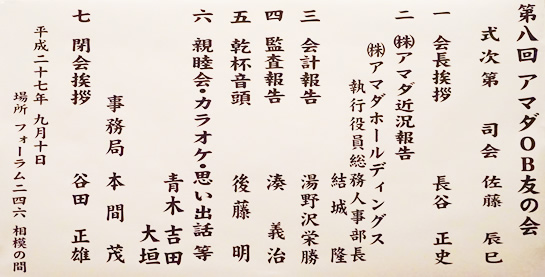 第八回 アマダOB友の会
式次第 司会 佐藤 辰巳
一 会長挨拶 長谷 正史
二 ㈱アマダ近況報告
㈱アマダホールディングス
執行役員総務人事部長
結城 隆
三 会計報告 湯野沢栄勝
四 監査報告 湊 義治
五 乾杯音頭 後藤 明
六 親睦会・カラオケ・思い出話 等
青木 吉田
大垣
事務局 本間 茂
七 閉会挨拶 谷田 正雄
平成二十七年 九月十日
場所 フォーラム二四六 相模の間